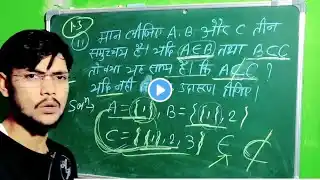 1.3
(11) मान लीजिए A, B और C तीन
समुच्चय हैं। यदि A∈B तथा B⊂C
तो क्या यह सत्य है कि A⊂C ?
यदि नहीं तो एक उदाहरण दीजिए।
Solⁿ A = {1}, B = {{1}, 2}
C = {{1}, 2, 3} ∈ ⊄